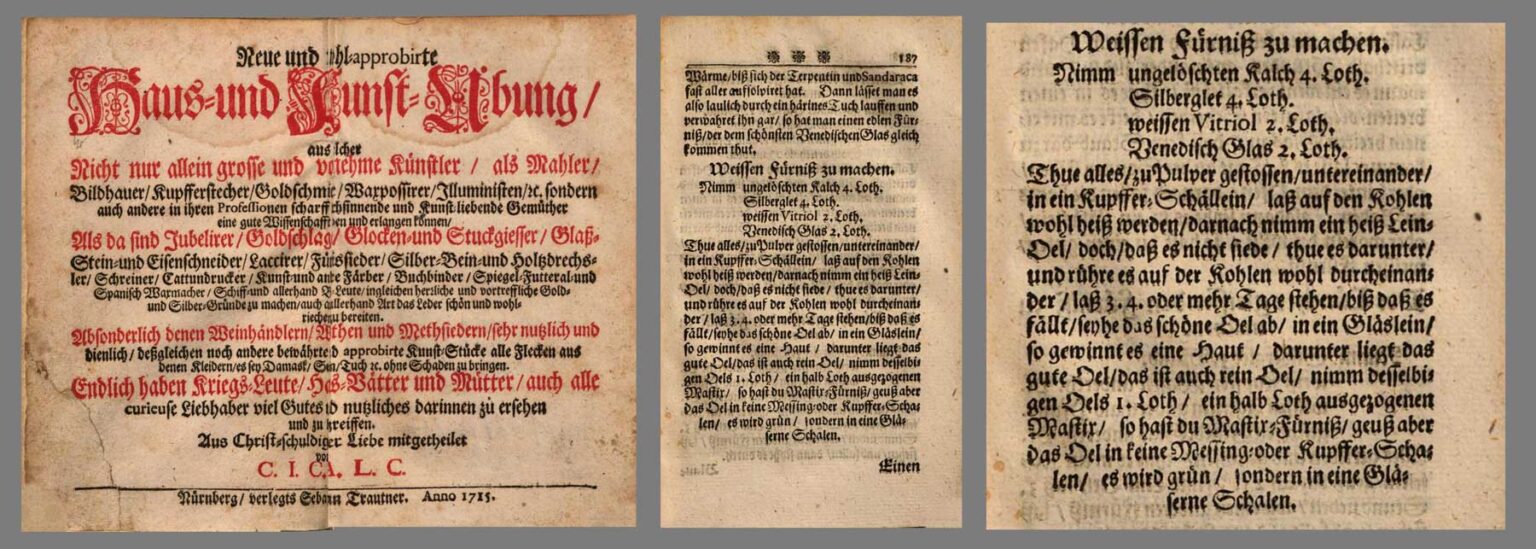 Neue und hl-approbirte
Haus-und Kunst-Übung/
aus lcher
Nicht nur allein grosse und vnehme Künstler / als Mahler/
Bildhauer/Kupfferstecher/Goldschmie/Waxpossirer/Illuministen/ꝛc. sondern
auch andere in ihren Professionen scharff hsinnende und Kunst liebende Gemüther
eine gute Wissenschafft en und erlangen können/
Als da sind Jubelirer/ Goldschlag/ Glocken-und Stuckgiesser/ Glaß-
Stein-und Eisenschneider/ Laccirer/ sieder/ Silber-Bein-und Holtzdrechs-
ler/ Schreiner/ Cattundrucker/ Kunst-und Färber/ Buchbinder/ Spiegel-Futteral-und
Spanisch Waxmacher/ Schiff-und allerhand Leute/ingleichen herrliche und vortreffliche Gold-
und Silber-Gründe zu machen/auch allerhand Art das Leder schön und wohl-
zu bereiten.
Absonderlich denen Weinhändlern/ und Methsiedern/sehr nutzlich und
dienlich/ deßgleichen noch andere bewährte approbirte Kunst-Stücke alle Flecken aus
denen Kleidern/es sey Damask/ Tuch ꝛc. ohne Schaden zu bringen.
Endlich haben Kriegs-Leute/ Vätter und Mütter/ auch alle
curieuse Liebhaber viel Gutes nutzliches darinnen zu ersehen
und zu
Aus Christ-schuldiger Liebe mitgetheilet
C. I. CA. L. C.
Nürnberg/ verlegts Trautner. Anno 1715.
187
Wärme/biß sich der Terpentin und Sandaraca
fast aller auffolviret hat. Dann lässet man es
also laulich durch ein härines Tuch lauffen und
verwahret ihn gar/ so hat man einen edlen Für-
niß/der dem schönsten Venedischen Glas gleich
kommen thut.
Weissen Fürniß zu machen.
Nimm ungelöschten Kalch 4. Loth.
Silberglet 4. Loth.
weissen Vitriol 2. Loth.
Venedisch Glas 2. Loth.
Thue alles/zu Pulver gestossen/untereinander/
in ein Kupffer-Schällein/ laß auf den Kohlen
wohl heiß werden/darnach nimm ein heiß Lein-
Oel/ doch/daß es nicht siede/ thue es darunter/
und rühre es auf der Kohlen wohl durcheinan-
der/ laß 3. 4. oder mehr Tage stehen/biß daß es
fällt/seyhe das schöne Oel ab/ in ein Gläslein/
so gewinnt es eine Haut/ darunter liegt das
gute Oel/das ist auch rein Oel/ nimm desselbi-
gen Oels 1. Loth/ ein halb Loth ausgezogenen
Mastix/ so hast du Mastix-Fürniß/ geuß aber
das Oel in keine Messing-oder Kupffer-Scha-
len/ es wird grün/ sondern in eine Glä-
serne Schalen.
Einen
Weissen Fürniß zu machen.
Nimm ungelöschten Kalch 4. Loth.
Silberglet 4. Loth.
weissen Vitriol 2. Loth.
Venedisch Glas 2. Loth.
Thue alles/zu Pulver gestossen/untereinander/
in ein Kupffer-Schällein/ laß auf den Kohlen
wohl heiß werden/darnach nimm ein heiß Lein-
Oel/ doch/daß es nicht siede/ thue es darunter/
und rühre es auf der Kohlen wohl durcheinan-
der/ laß 3. 4. oder mehr Tage stehen/biß daß es
fällt/seyhe das schöne Oel ab/ in ein Gläslein/
so gewinnt es eine Haut/ darunter liegt das
gute Oel/das ist auch rein Oel/ nimm desselbi-
gen Oels 1. Loth/ ein halb Loth ausgezogenen
Mastix/ so hast du Mastix-Fürniß/ geuß aber
das Oel in keine Messing-oder Kupffer-Scha-
len/ es wird grün/ sondern in eine Glä-
serne Schalen.